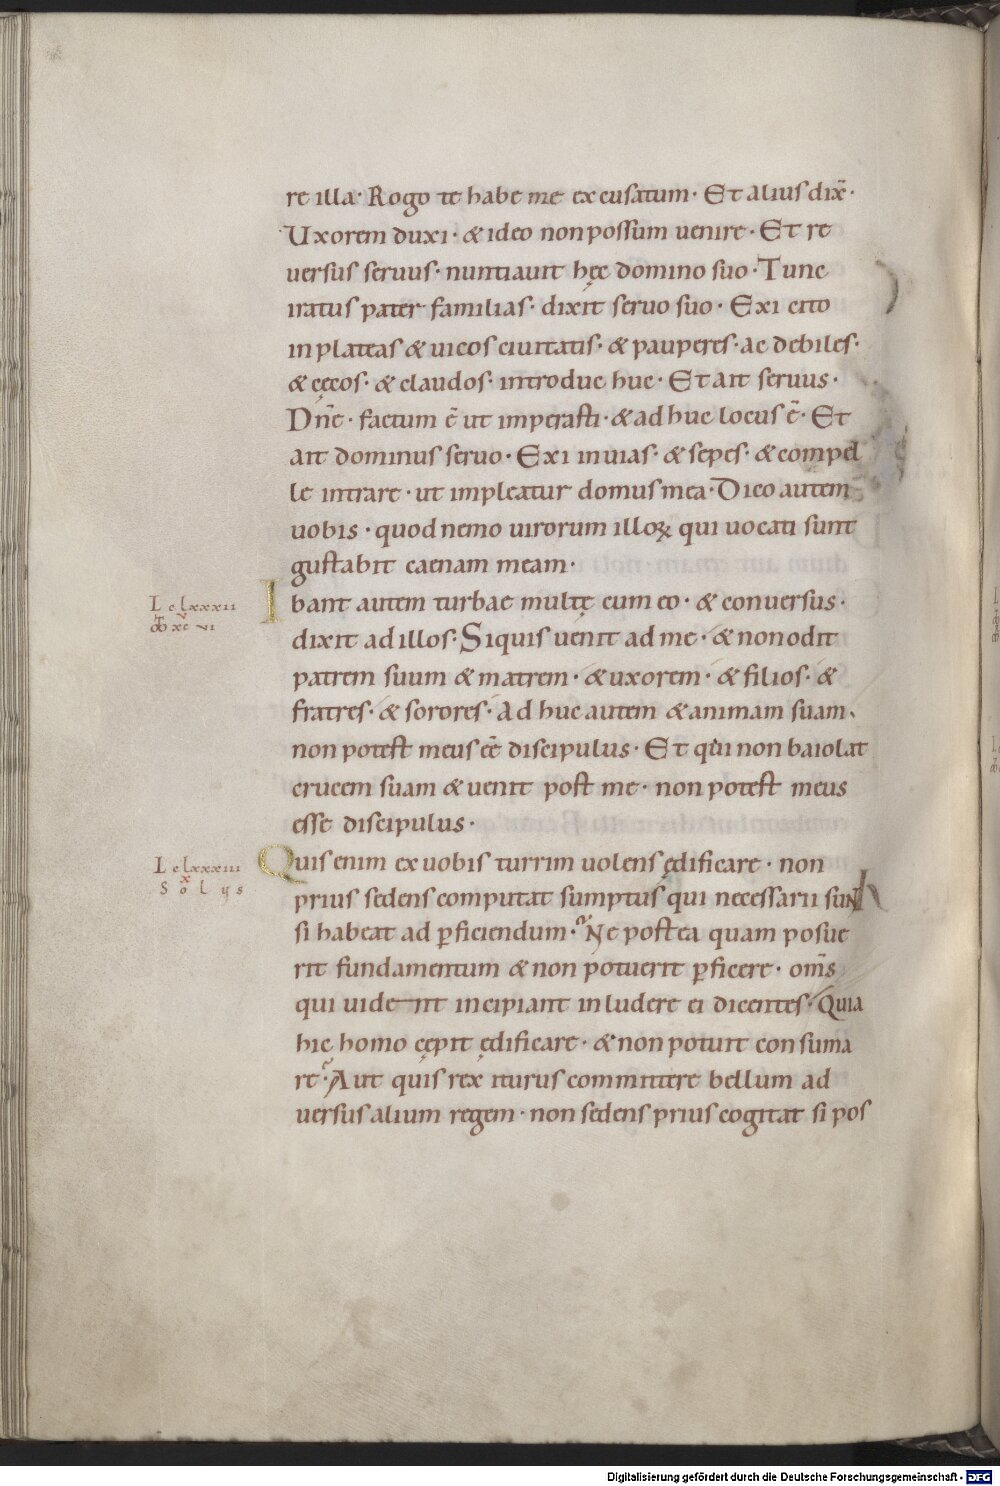 re illa· Rogo te habe me excusatum· Et alius dix̄·
Uxorem duxi· & ideo non possum uenire· Et re
uersus seruus· nuntiauit hęc domino suo· Tunc
iratus pater familias· dixit seruo suo· Exi cito
in plateas & uicos ciuitatis· & pauperes· ac debiles·
& cęcos· & claudos· introduc huc· Et ait seruus·
Dn̄e· factum ē ut imperasti· & ad huc locus ē· Et
ait dominus seruo· Exi in uias· & sepes· & compel
le intrare· ut impleatur domus mea· Dico autem
uobis· quod nemo uirorum illoꝝ qui uocati sunt
gustabit caenam meam·
Lc lxxxii
xc vi
Ibant autem turbae multę cum eo· & conuersus·
dixit ad illos· Si quis uenit ad me· & non odit
patrem suum & matrem· & uxorem· & filios· &
fratres· & sorores· Ad huc autem & animam suam·
non potest meus eē discipulus· Et qui non baiolat
crucem suam & uenit post me· non potest meus
esse discipulus·
Lc lxxxiii
x
Solus
Quis enim ex uobis turrim uolens ędificare· non
prius sedens computat sumptus qui necessarii sunt
si habeat ad ꝑficiendum· Ne postea quam posue
rit fundamentum & non potuerit ꝑficere· om̄s
qui uident incipiant inludere ei dicentes· Quia
hic homo cępit ędificare· & non potuit consuma
re· Aut quis rex iturus committere bellum ad
uersus alium regem· non sedens prius cogitat si pos
Digitalisierung gefördert durch die Deutsche Forschungsgemeinschaft - DFG